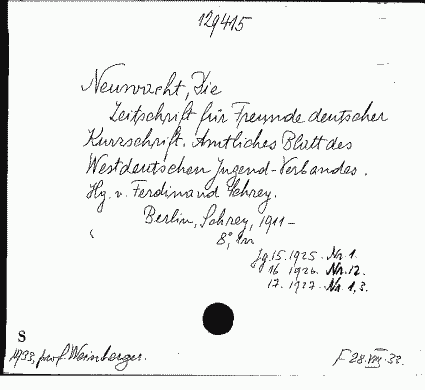 129415
Neuwacht, Die
Zeitschrift für Freunde deutscher
Kurzschrift. Amtliches Blatt des
Westdeutschen Jugend-Verbandes.
Hg. v. Ferdinand Schrey.
Berlin, Schrey, 1911-
8°,
Jg. 15. 1925. Nr. 1.
16. 1926. Nr. 12.
17. 1927. Nr. 1, 3.
S
1933, prof. Weinberger.
F 28. VIII. 33.